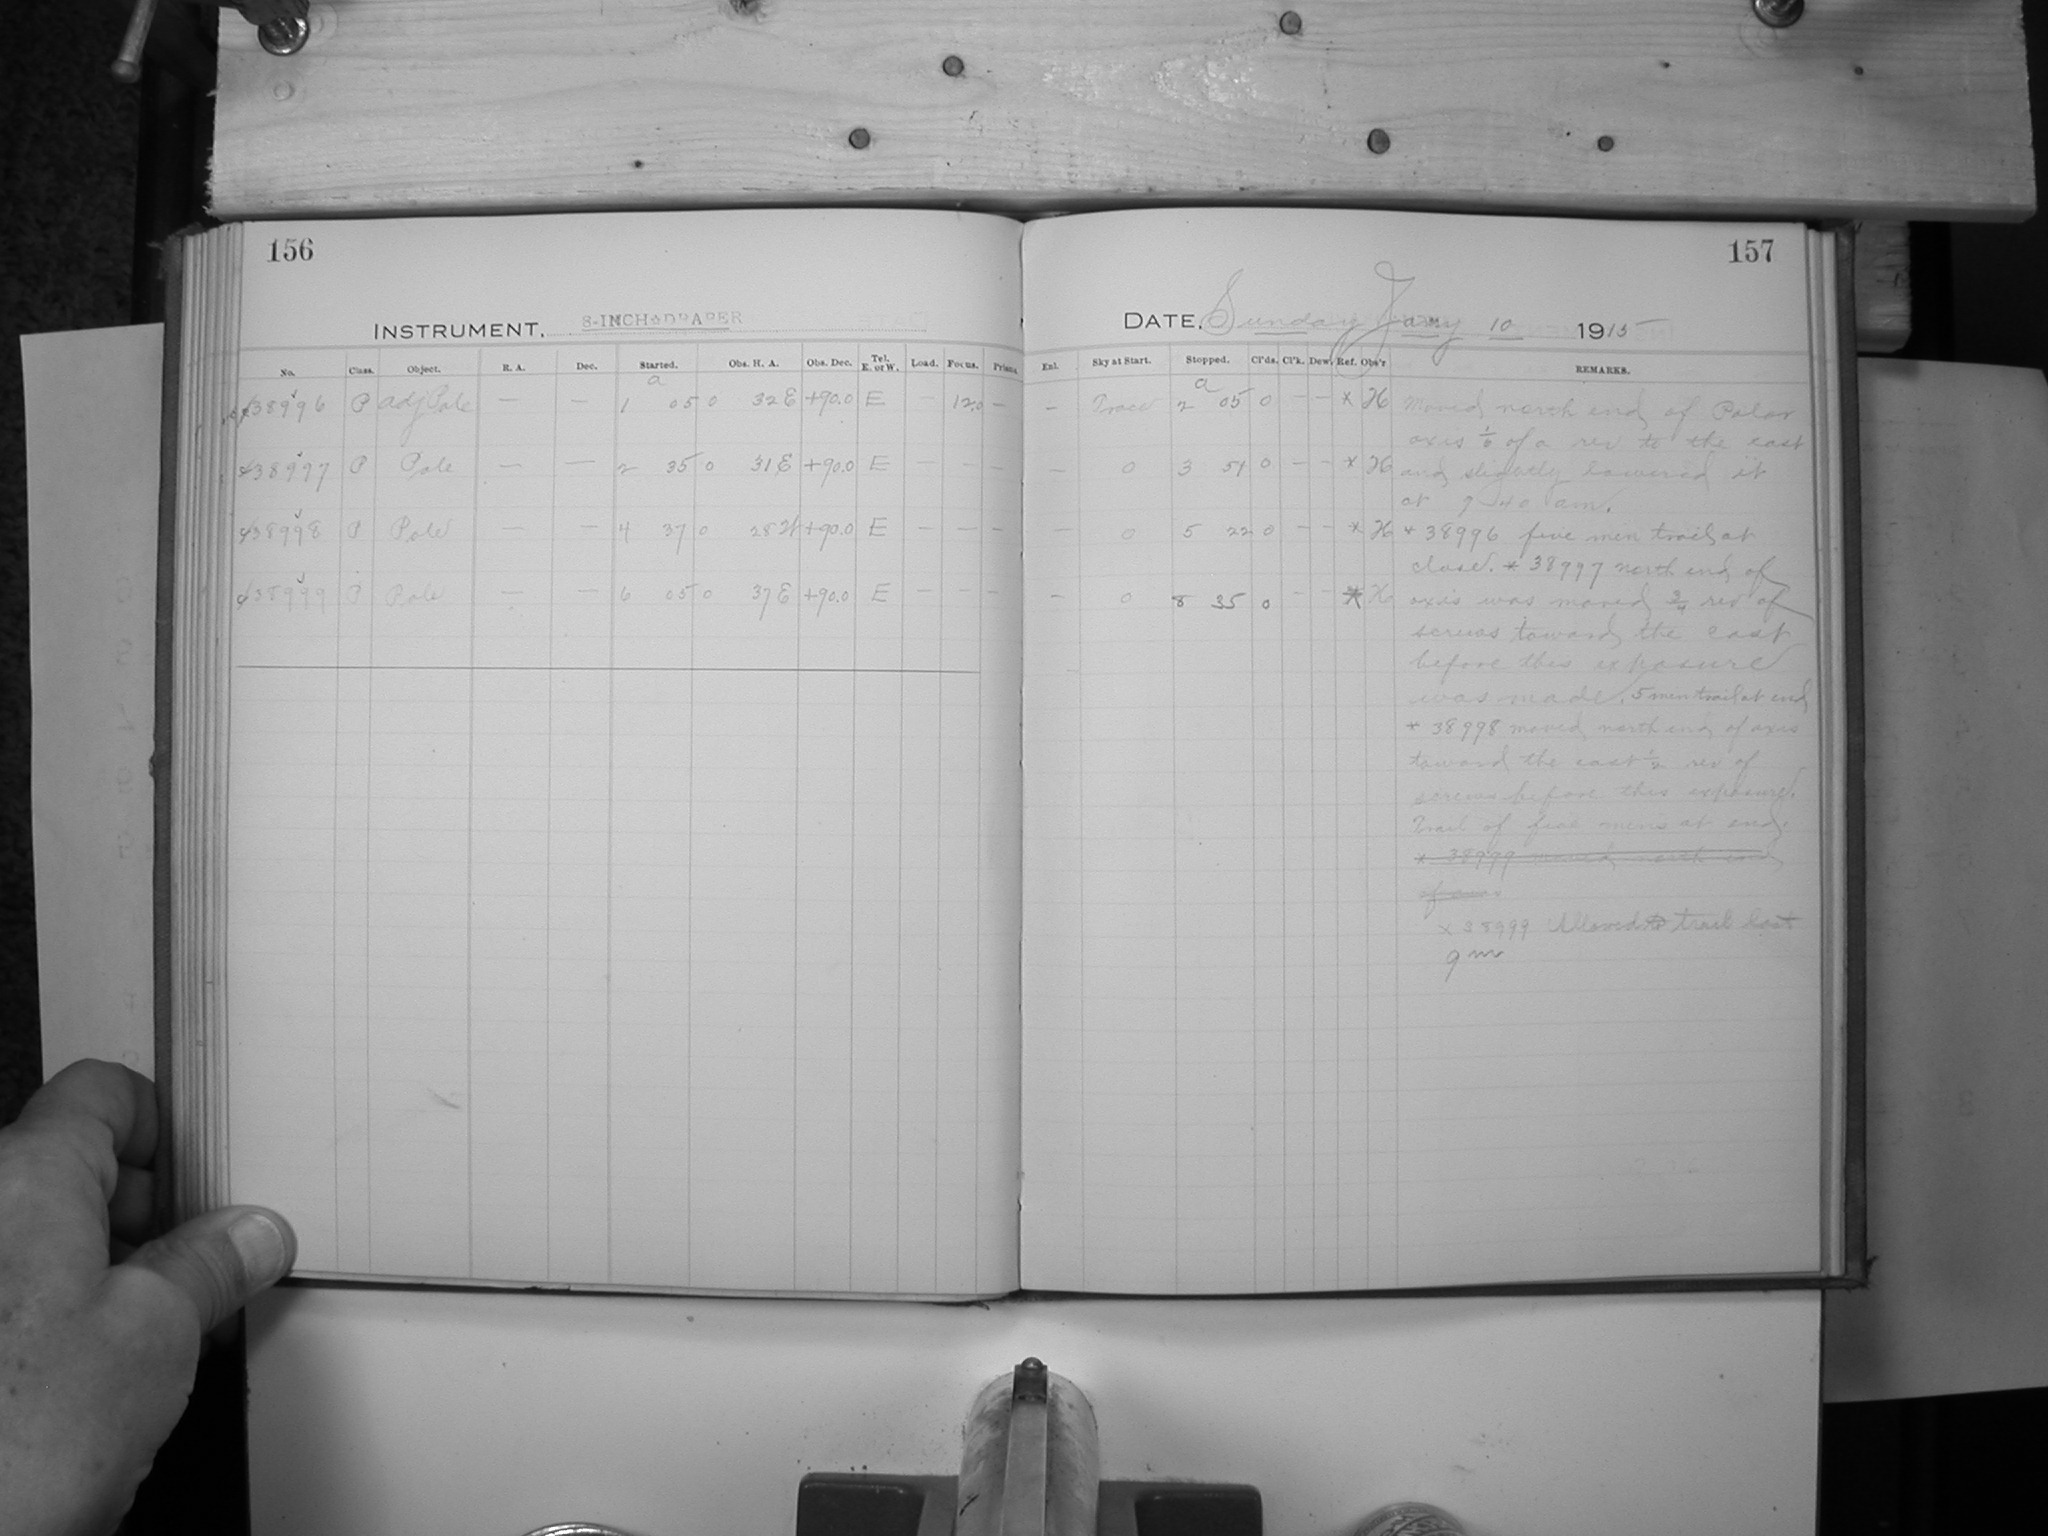 156
INSTRUMENT. 8-INCH DRAPER
No. Class. Object. R. A. Dec. Started. Obs. H. A. Obs. Dec. Tel. E. or W. Load. Focus. Prisms.
38996 P Adj Pole — — a 1 05 0 32 E +90.0 E — 12.0 —
38997 P Pole — — 2 35 0 31 E +90.0 E — — —
38998 P Pole — — 4 37 0 28 W +90.0 E — — —
38999 P Pole — — 6 05 0 37 E +90.0 E — — —
157
DATE, Sunday Jany 10 1915
Enl. Sky at Start. Stopped. Cl'ds. Cl'k. Dew. Ref. Obs'r REMARKS.
— Trace a 2 05 0 — — * H Moved north end of Polar
axis 1/6 of a rev to the east
— 0 3 51 0 — — * H and slightly lowered it
at 9 40 am.
— 0 5 22 0 — — * H * 38996 five min trail at
close. * 38997 north end of
— 0 8 35 0 — — * H axis was moved 3/4 rev of
screws toward the east
before this exposure
was made. 5 min trail at end
* 38998 moved north end of axis
toward the east 1/2 rev of
screws before this exposure.
Trail of five mins at end.
* 38999 moved north end
of axis
x 38999 Allowed to trail last
9 m